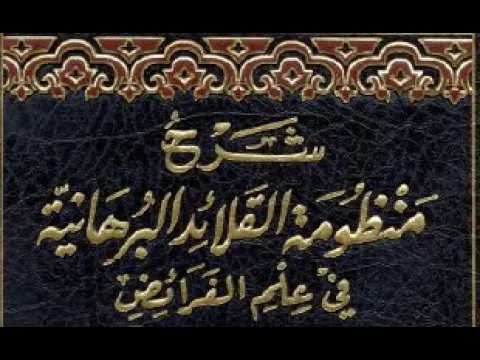 شَرْحُ
مَنْظُومَةِ القَلَائِدِ البُرْهَانِيَّةِ
فِي عِلْمِ الفَرَائِضِ